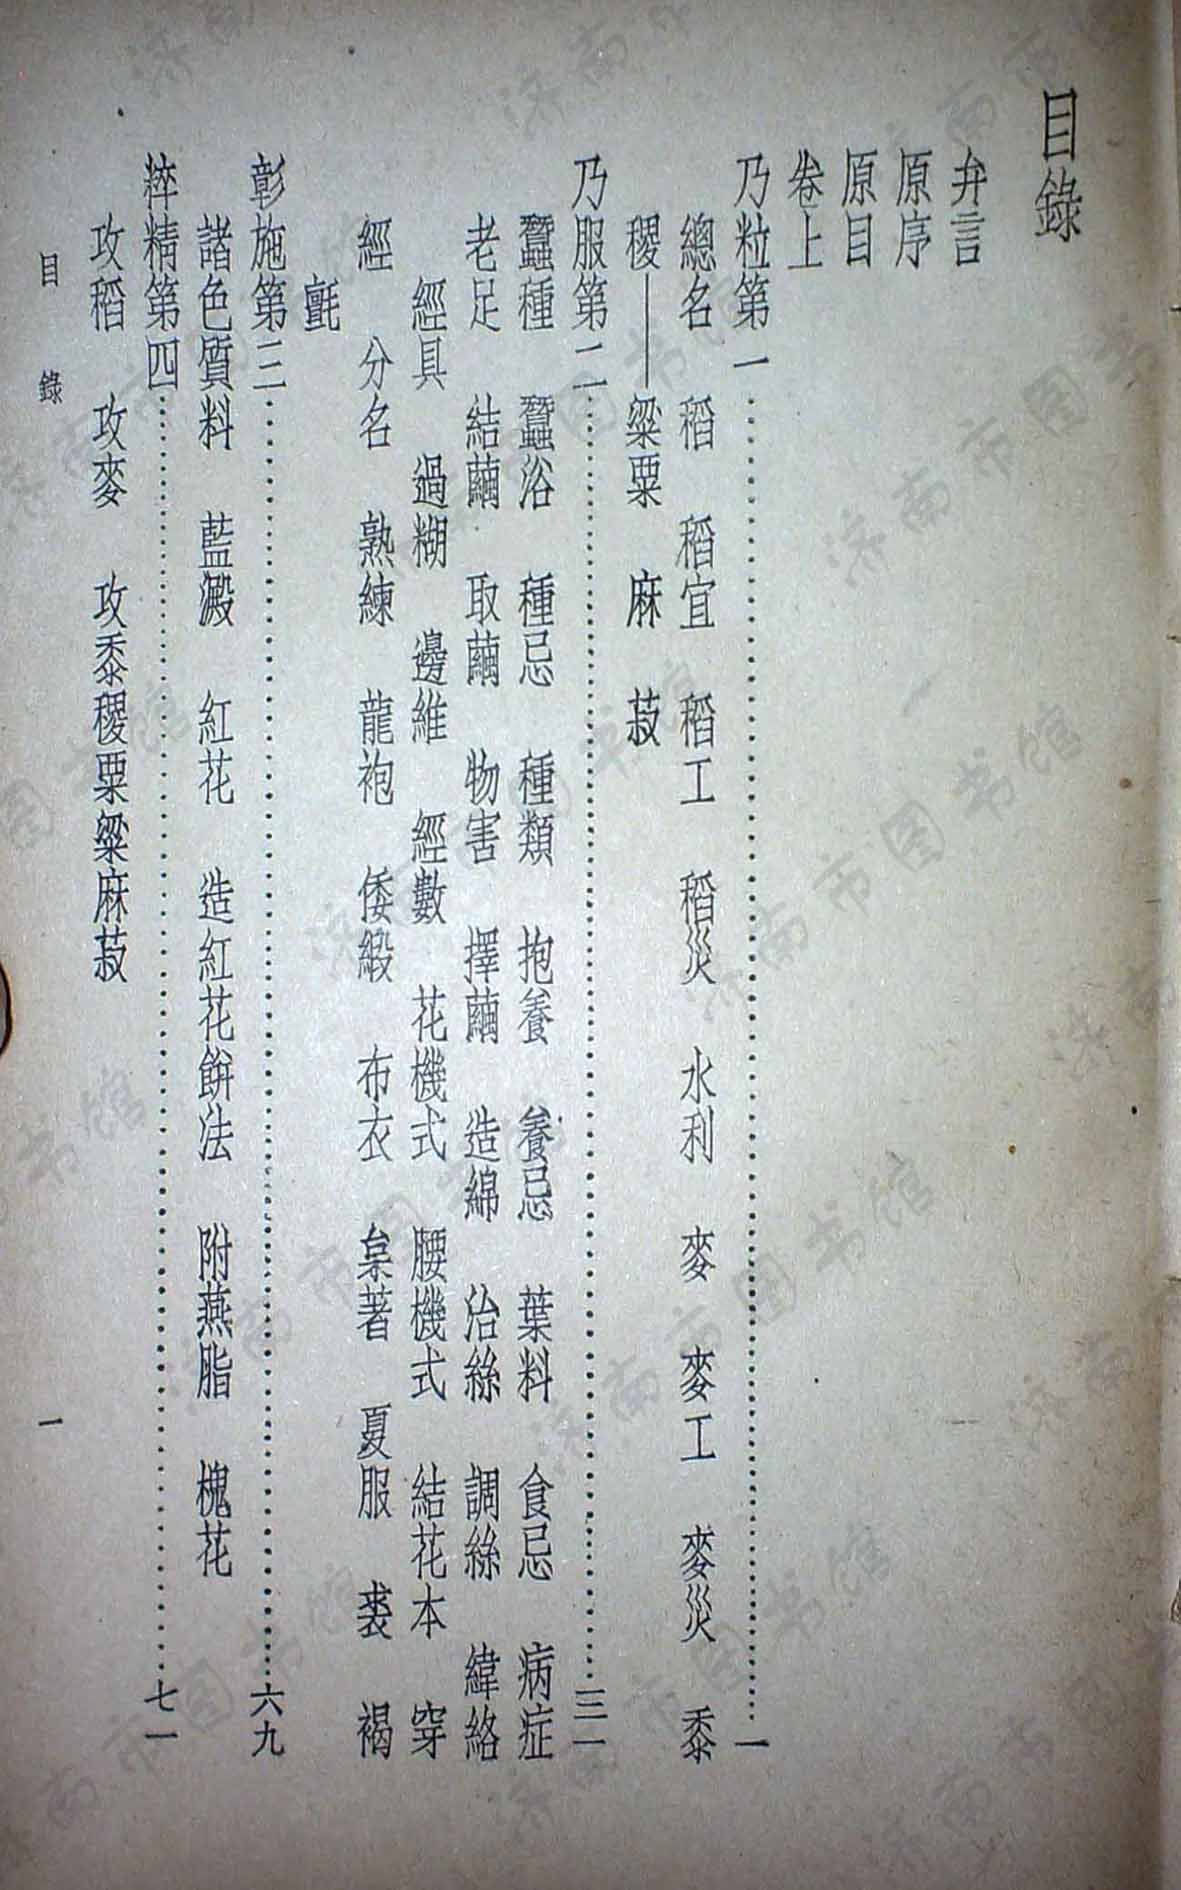 目錄
弁言
原序
原目
卷上
乃粒第一……一
總名　稻　稻宜　稻工　稻災　水利　麥　麥工　麥災　黍
稷——粱粟　麻　菽
乃服第二……三一
蠶種　蠶浴　種忌　種類　抱養　養忌　葉料　食忌　病症
老足　結繭　取繭　物害　擇繭　造綿　治絲　調絲　緯絡
經具　過糊　邊維　經數　花機式　腰機式　結花本　穿
經　分名　熟練　龍袍　倭緞　布衣　枲著　夏服　裘　褐
氈
彰施第三……六九
諸色質料　藍澱　紅花　造紅花餅法　附燕脂　槐花
粹精第四……七一
攻稻　攻麥　攻黍稷粟粱麻菽
目錄　一
济南市图书馆